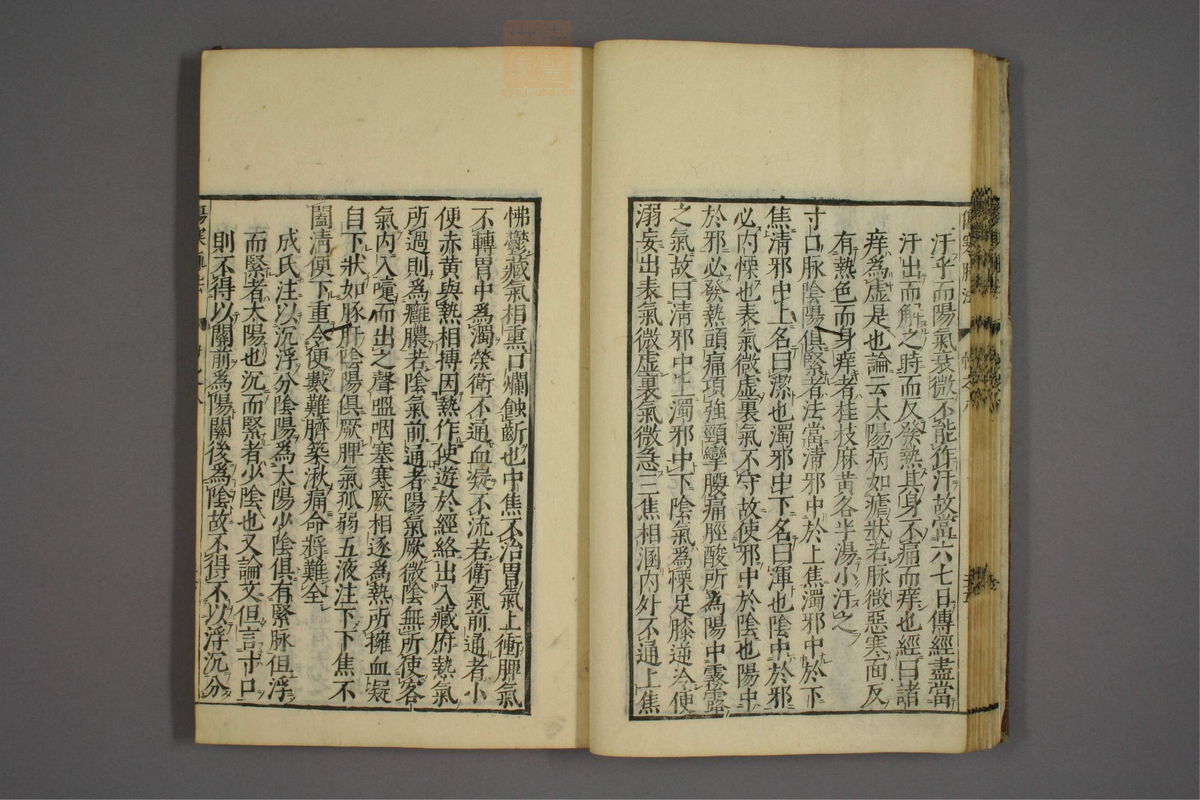 汗乎而陽氣衰微不能作汗故當六七日傳經盡當
汗出而解之時而反發熱其身不痛而痒也經曰諸
痒為虛是也論云太陽病如瘧狀若脉微惡寒面反
有熱色而身痒者桂枝麻黄各半湯小汗之
寸口脉陰陽俱緊者法當清邪中於上焦濁邪中於下
焦清邪中上名曰潔也濁邪中下名曰渾也陰中於邪
必內慄也表氣微虛裏氣不守故使邪中於陰也陽中
於邪必發熱頭痛項強頸攣腰痛脛酸所為陽中霧露
之氣故曰清邪中上濁邪中下陰氣為慄足膝逆冷便
溺妄出表氣微虛裏氣微急三焦相溷內外不通上焦
怫鬱藏氣相熏口爛蝕齗也中焦不治胃氣上衝脾氣
不轉胃中為濁榮衛不通血凝不流若衛氣前通者小
便赤黄與熱相搏因熱作使遊於經絡出入藏府熱氣
所過則為癰膿若陰氣前通者陽氣厥微陰無所使客
氣內入嚏而出之聲嗢咽塞寒厥相逐為熱所擁血凝
自下狀如豚肝陰陽俱厥脾氣孤弱五液注下下焦不
闔清便下重令便數難臍築湫痛命將難全
成氏注以沉浮分陰陽為太陽少陰俱有緊脉但浮
而緊者太陽也沉而緊者少陰也又論文但言寸口
則不得以關前為陽關後為陰故不得不以浮沉分